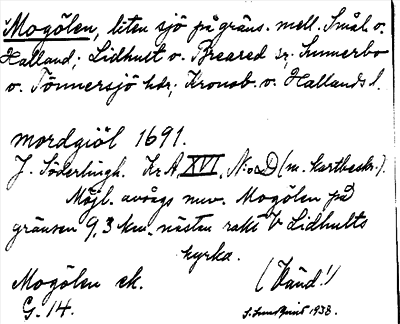 Mogölen, liten sjö på gräns. mell. Smål. o.
Halland; Lidhult o. Breared sr; Sunnerbo
o. Tönnersjö hdr; Kronob. o. Hallands l.
mordgiöl 1691.
J. Söderlingh. Kr A XVI, N:o (m. kartbeskr.).
Möjl. avsågs nuv. Mogölen på
gränsen 9,3 km. nästan rakt V Lidhults
kyrka.
Mogölen ek. (Vänd!)
G. 14. 1938.